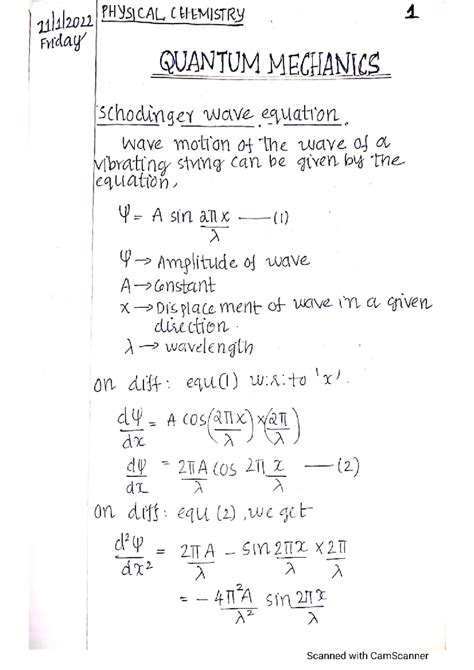 21/1/2022 PHYSICAL CHEMISTRY 1
Friday
QUANTUM MECHANICS
Schodinger wave equation.
Wave motion of the wave of a
vibrating string can be given by the
equation,
Ψ = A sin 2πx/λ —(1)
Ψ → Amplitude of wave
A → Constant
x → Displacement of wave in a given
direction.
λ → wavelength
On diff: equ(1) w:r:to 'x'.
dΨ/dx = A cos(2πx/λ)×(2π/λ)
dΨ/dx = 2πA/λ cos 2π x/λ —(2)
On diff: equ (2), we get
d²Ψ/dx² = 2πA/λ - sin 2πx/λ × 2π/λ
= - 4π²A/λ² sin 2πx/λ
Scanned with CamScanner